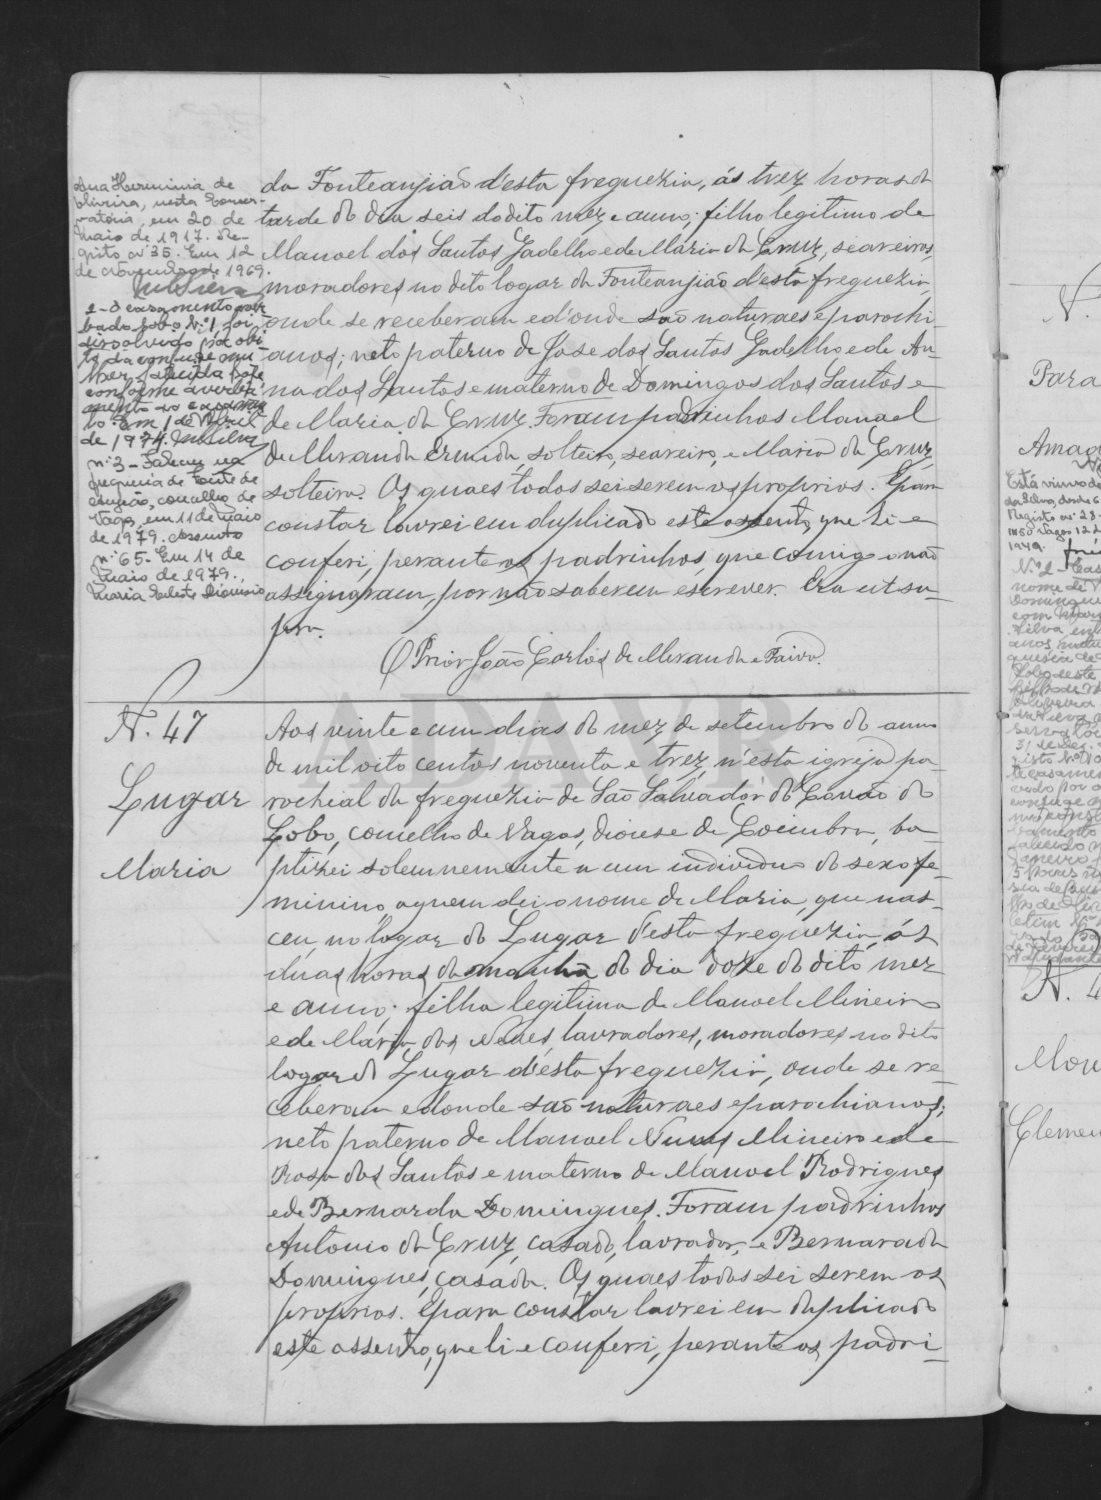 Ana Herminia de
Oliveira, nesta Conser-
vatória, em 20 de
Maio de 1917. Re-
gisto nº 35. Em 12
de Novembro de 1969.
2-O casamento aver-
bado sob o nº 1, foi
dissolvido por óbi-
to da conjuge mu-
lher, falecida hoje
conforme averba-
mento ao casamen
to. Em 1 de Abril
de 1974.
nº 3 - Faleceu na
freguesia de Fonte de
Angião, concelho de
Vagos, em 11 de Maio
de 1979. Assento
nº 65. Em 14 de
Maio de 1979.
Maria Celeste Dionisio
da Fonteanjião d'esta freguezia, ás trez horas da
tarde do dia seis do dito mez e anno; filho legitimo de
Manoel dos Santos Gadelho e de Maria da Cruz, seareiros,
moradores no dito logar da Fonteanjião d'esta freguezia,
onde se receberam e d'onde são naturaes e parochi-
anos; neto paterno de Jose dos Santos Gadelho e de An-
na dos Santos e materno de Domingos dos Santos e
de Maria da Cruz. Foram padrinhos Manoel
de Miranda solteiro, seareiro, e Maria da Cruz,
solteira. Os quaes todos sei serem os proprios. E para
constar lavrei em duplicado este assento, que li e
conferi, perante os padrinhos, que comigo não
assignaram, por não saberem escrever. Era ut su-
pra.
O Prior João Carlos de Miranda e Paiva.
N. 47
Lugar
Maria
Aos vinte e um dias do mez de setembro do anno
de mil oito centos noventa e trez, n'esta igreja pa-
rochial da freguezia de São Salvador do Covão do
Lobo, concelho de Vagos, diocese de Coimbra, ba-
ptizei solemnemente a um individuo do sexo fe-
minino, a quem dei o nome de Maria, que nas-
ceu, no logar do Lugar d'esta freguezia, ás
duas horas da manhã do dia doze do dito mez
e anno; filha legitima de Manoel Mineiro
e de Maria das Neves, lavradores, moradores no dito
logar do Lugar d'esta freguezia, onde se re-
ceberam e donde são naturaes e parochianos;
neto paterno de Manoel Nunes Mineiro e de
Rosa dos Santos e materno de Manoel Rodrigues
e de Bernarda Domingues. Foram padrinhos
Antonio da Cruz, casado, lavrador, e Bernarda
Domingues, casada. Os quaes todos sei serem os
proprios. E para constar lavrei em duplicado
este assento, que li e conferi, perante os padri-
ADAVR
N.
Para
Está viuvo de
da Silva, desde 6
Registo nº 23
N. 4
Clemen